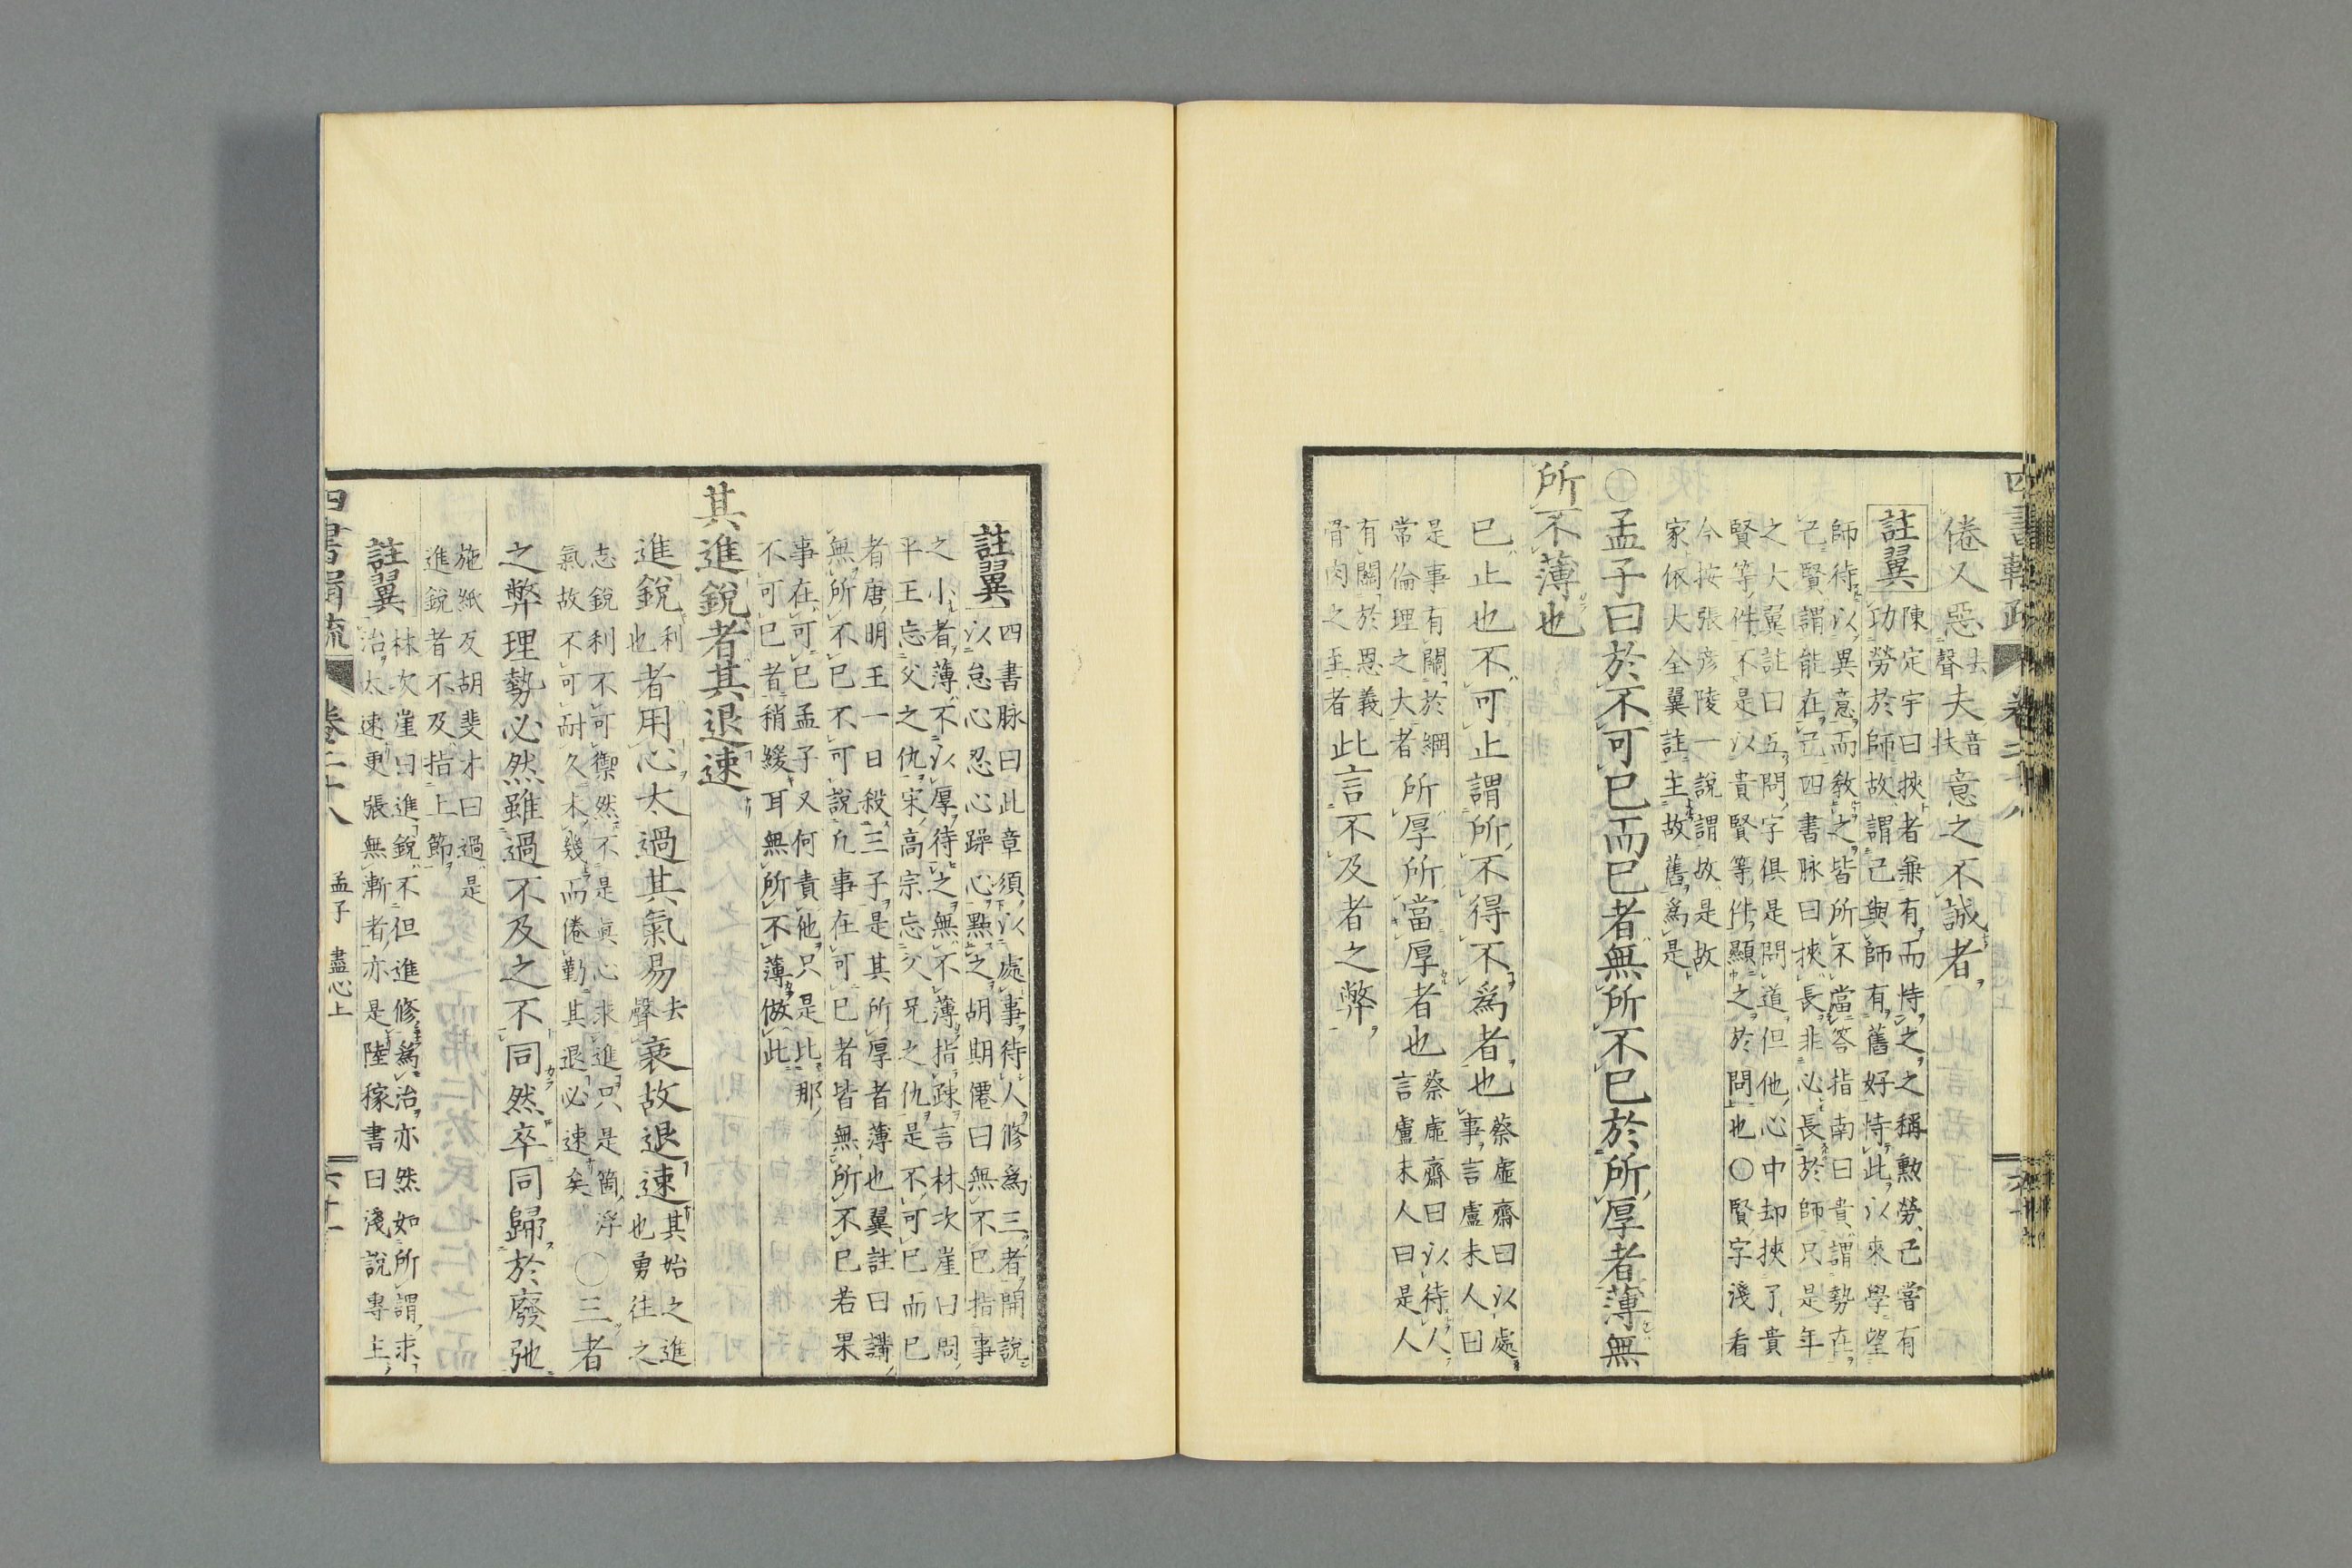 倦又惡去聲夫音扶意之不誠者
註翼
陳定宇曰挾者兼有而恃之之稱勲勞己嘗有
功勞於師故謂己與師有舊好恃此以來學望
師待以異意而敎之皆所不當答指南曰貴謂勢在
己賢謂能在己四書脉曰挾長非必長於師只是年
之大翼註曰五問字俱是問道但他心中却挾了貴
賢等件不是以貴賢等件顯之於問也○賢字淺看
今按張彦陵一說謂故是故
家依大全翼註主故舊爲是
○孟子曰於不可已而已者無所不已於所厚者薄無
所不薄也
已止也不可止謂所不得不爲者也
蔡虛齋曰以處
事言盧未人曰
是事有關於綱
常倫理之大者
所厚所當厚者也
蔡虛齋曰以待人
言盧未人曰是人
有關於恩義
骨肉之至者
此言不及者之弊
註翼
四書脉曰此章須以處事待人修爲三者開說
以怠心忍心躁心點之胡期僊曰無不已指事
之小者薄不以厚待之無不薄指疎言林次崖曰問
平王忘父之仇宋高宗忘父兄之仇是不可已而已
者唐明王一日殺三子是其所厚者薄也翼註曰講
無所不已不可說凡事在可已者皆無所不已若果
事在可已孟子又何責他只是比那
不可已者稍緩耳無所不薄倣此
其進銳者其退速
進銳利也者用心太過其氣易去聲衰故退速
其始之進
也勇往之
志銳利不可禦然不是眞心求進只是簡浮
氣故不可耐久未幾而倦勤其退必速矣
○三者
之弊理勢必然雖過不及之不同然卒同歸於廢弛
施紙反胡斐才曰過是
進銳者不及指上節
註翼
林次崖曰進銳不但進修爲治亦然如所謂求
治太速更張無漸者亦是陸稼書曰淺說專上
卷二十八
孟子　盡心上